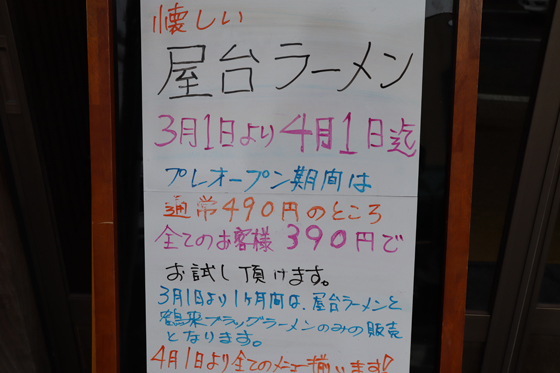 懐しい
屋台ラーメン
3月1日より4月1日迄
プレオープン期間は
通常490円のところ
全てのお客様390円で
お試し頂けます。
3月1日より1ヶ月間は、屋台ラーメンと
鶴来ブラックラーメンのみの販売
となります。
4月1日より全てのメニュー揃います!